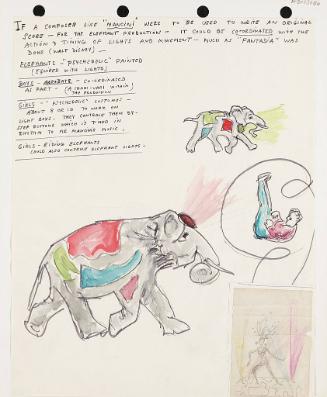 IF A COMPOSER LIKE "MANCINI" WERE TO BE USED TO WRITE AN ORIGINAL
SCORE - FOR THE ELEPHANT PRODUCTION - IT COULD BE COORDINATED WITH THE
ACTION & TIMING OF LIGHTS AND MOVEMENT - MUCH AS "FANTASIA" WAS
DONE (WALT DISNEY) -
ELEPHANTS - "PSYCHEDELIC" PAINTED
(EQUIPED WITH LIGHTS)
BOYS - ACROBATS - CO-ORDINATED
AS PART - (A SMALL UNIT WITHIN)
THE PRODUCTION
GIRLS - "PSYCHEDELIC" COSTUMES -
ABOUT 8 OR 10 TO WORK ON
LIGHT BOXS. THEY CONTROLE THEM BY-
STEP BUTTONS WHICH IS TIMED IN
RHYTHM TO THE MANCINI MUSIC.
GIRLS - RIDING ELEPHANTS
COULD ALSO CONTROLE ELEPHANT LIGHTS -